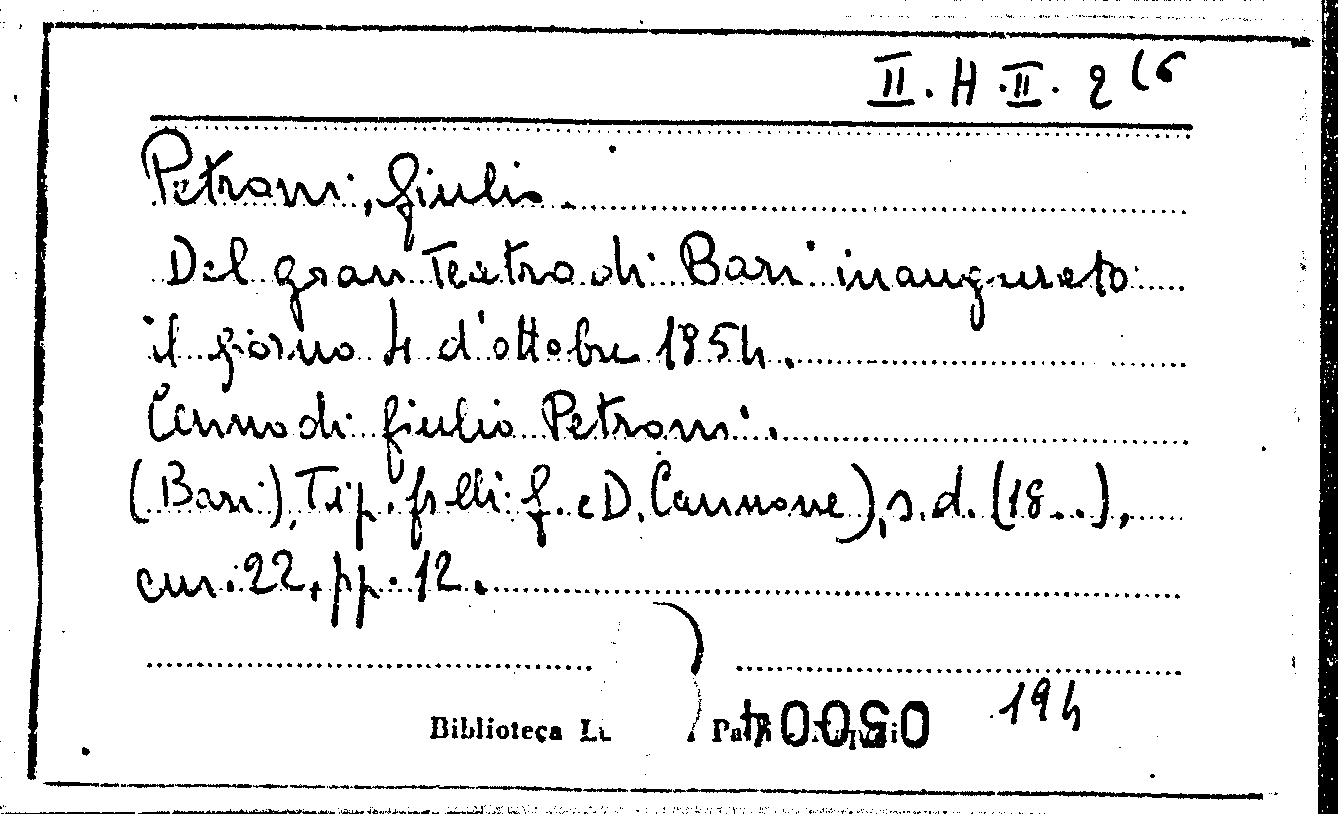 II. H. II. 2 (6
Petroni, Giulio.
Del gran Teatro di Bari inaugurato
il giorno 4 d'ottobre 1854.
Cenno di Giulio Petroni.
(Bari), Tip. f.lli G. e D. Cannone), s.d. (18..),
cm. 22, pp. 12.
Biblioteca
05004
194